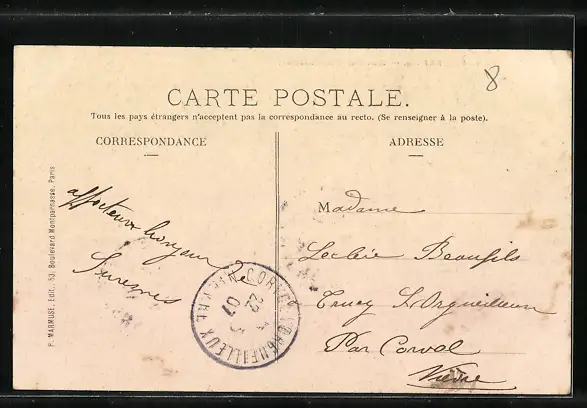 8
CARTE POSTALE.
Tous les pays étrangers n'acceptent pas la correspondance au recto. (Se renseigner à la poste).
CORRESPONDANCE
ADRESSE
P. MARMUSE, Edit., 53, Boulevard Montparnasse, Paris
affectueux bonjour de
Suresnes
Madame
Leclère Beaufils
Trucy L'Orgueilleux
Par Corvol
Nièvre
CORVOL L'ORGUEILLEUX
22
07